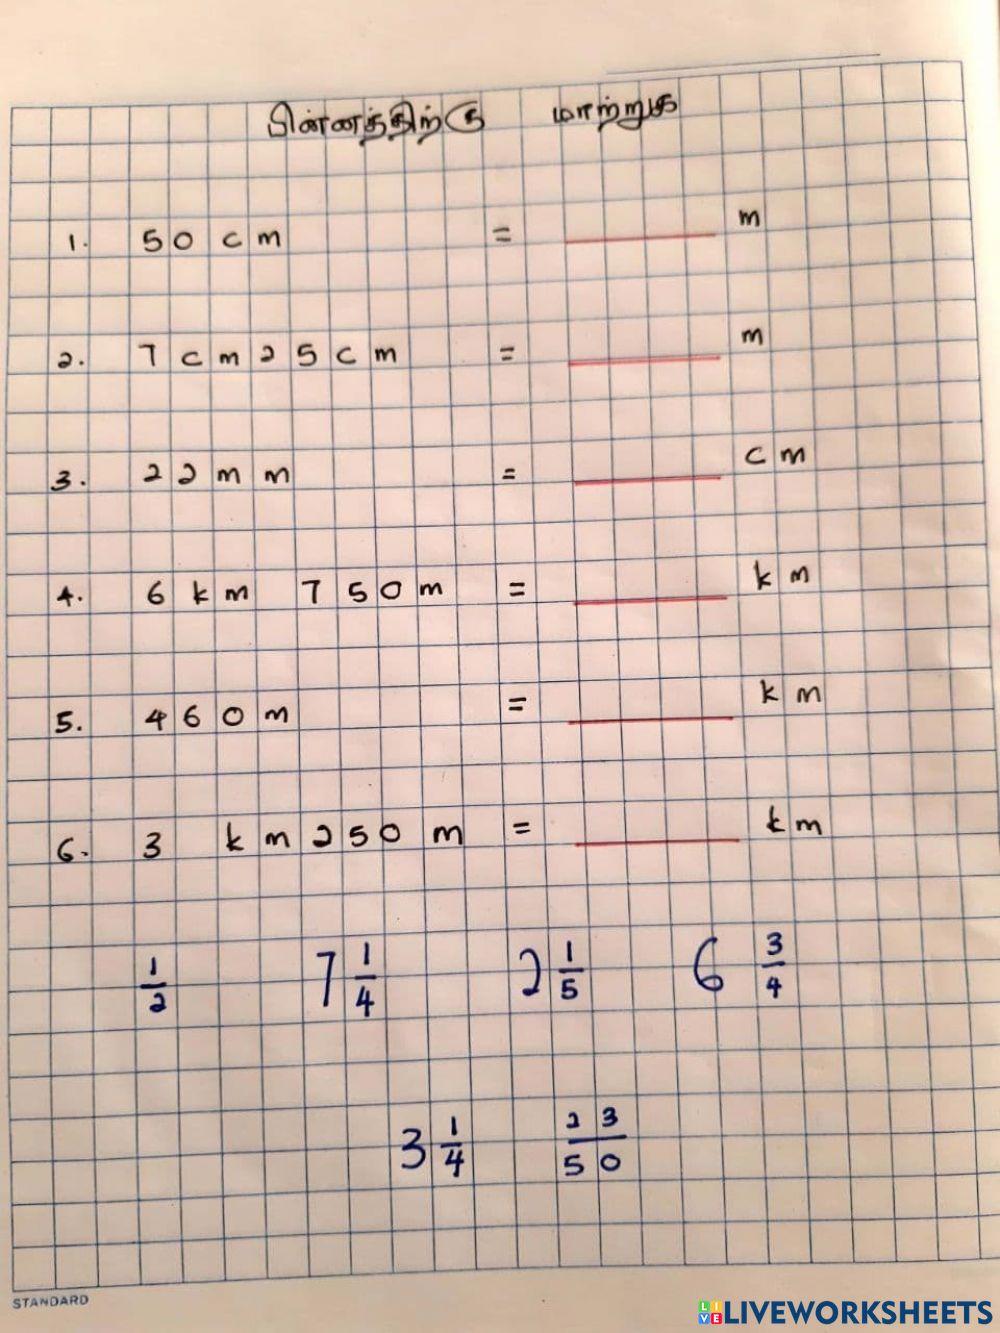 பின்னத்திற்கு மாற்றுக
1. 50 cm = m
2. 7 cm 25 cm = m
3. 22 mm = cm
4. 6 km 750 m = km
5. 460 m = km
6. 3 km 250 m = km
1/2 7 1/4 2 1/5 6 3/4
3 1/4 23/50
STANDARD
LIVEWORKSHEETS